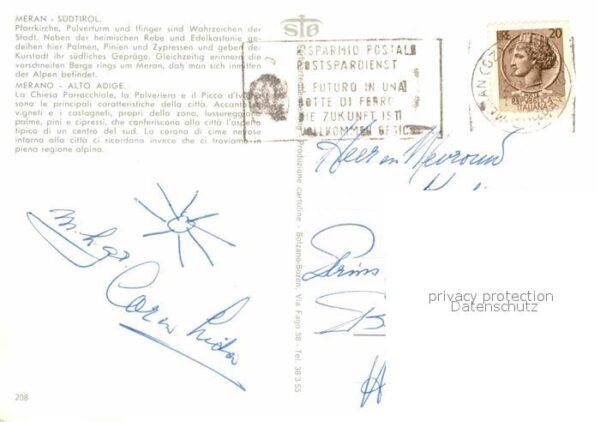 MERAN - SÜDTIROL.
Pfarrkirche, Pulverturm und Ifinger sind Wahrzeichen der
Stadt. Neben der heimischen Rebe und Edelkastanie ge-
deihen hier Palmen, Pinien und Zypressen und geben der
Kurstadt ihr südliches Gepräge. Gleichzeitig erinnern die
verschneiten Berge rings um Meran, daß man sich inmitten
der Alpen befindet.
MERANO - ALTO ADIGE.
La Chiesa Parrocchiale, la Polveriera e il Picco d'Iv
sono le principali caratteristiche della città. Accanto
vigneti e i castagneti, propri della zona, lussureggia
palme, pini e cipressi, che conferiscono alla città l'aspetto
tipico di un centro del sud. La corona di cime nevose
intorno alla città ci ricordano invece che ci troviamo in
piena regione alpina.
STB
RISPARMIO POSTALE
POSTSPARDIENST
IL FUTURO IN UNA
BOTTE DI FERRO
DIE ZUKUNFT IST
20
ITALIANA
Heer en Mevrouw
Prins
m. h. gr.
208
produzione cartoline - Bolzano-Bozen, Via Fago 38 - Tel. 38 3 55
privacy protection
Datenschutz